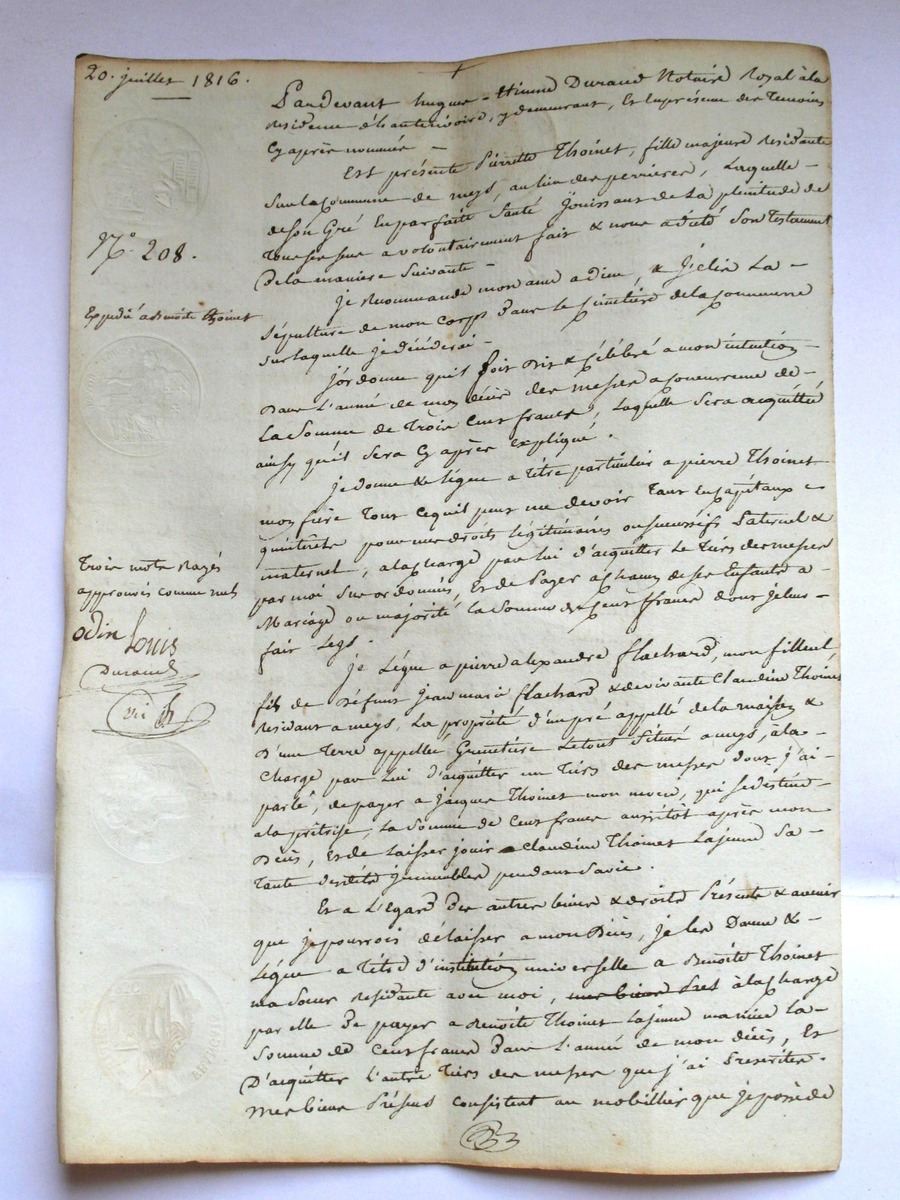 20. juillet 1816.
Pardevant hugues-Etienne Durand Notaire Royal à la
Residence d'hauterivoire, y demeurant, Et En présence des Temoins
Cy après nommés -
Est présente Pierrette Thoinet, fille majeure Residante
Sur la Commune de meys, au lieu des perrieres, Laquelle -
de Son Gré En parfaite Santé Jouissant de La plenitude de
Tous ses sens a volontairement fait & nous a dicté Son Testament
De la maniere Suivante -
N.° 208.
Je Recommande mon ame a dieu, & J'Elis La -
Expedié a Benoite Thoinet
Sépulture de mon Corps Dans le Cimetière de la Commune
Sur laquelle je décéderai -
J'ordonne qu'il Soit Dit & Célébré a mon intention
Dans L'année de mon décès des messes a Concurrence de -
La Somme de Trois Cent francs, Laquelle Sera acquittée
ainsy qu'il Sera Cy après Expliqué.
Je donne & légue a titre particulier a pierre Thoinet
mon frère Tout Ce qu'il peut me devoir Tant En Capitaux &
qu'intérêts pour mes droits légitimaires ou Successifs Paternel &
maternel, a la Charge par lui d'acquitter Le Tiers des messes
par moi Sus ordonnés, Et de Payer a Chacun de ses Enfants a
Mariage ou majorité la Somme de Cent francs dont Je leur -
fait Legs.
Trois mots Rayés
approuvés comme nuls
odin Louis
Durand
Je Légue a pierre alexandre flachard, mon filleul,
fils de Défunt Jean marie flachard & de vivante Claudine Thoinet
Residant a meys, La propriété d'un pré appellé de la maison &
D'une Terre appellée Gruntière Le tout Situé a meys, a la -
Charge par Lui d'acquitter un Tiers des messes dont J'ai -
parlé, de payer a Jacques Thoinet mon neveu, qui Se destine
a la prêtrise, La Somme de Cent francs aussitôt après mon
Décès, Et de Laisser jouir Claudine Thoinet La jeune Sa -
Tante desdits immeubles pendant Sa vie.
Et a L'Egard Des autres biens & droits Présents & avenir
que je pourrois délaisser a mon Décès, Je les Donne &
Légue a Titre d'institution universelle a Benoîte Thoinet
ma Soeur Residante avec moi, mes biens à la Charge
par elle De payer a Benoîte Thoinet La jeune ma nièce La -
Somme de Cent francs Dans L'année de mon décès, Et
D'acquitter L'autre Tiers des messes que j'ai Prescrites.
Mes biens Présens Consistent au mobillier que je possède